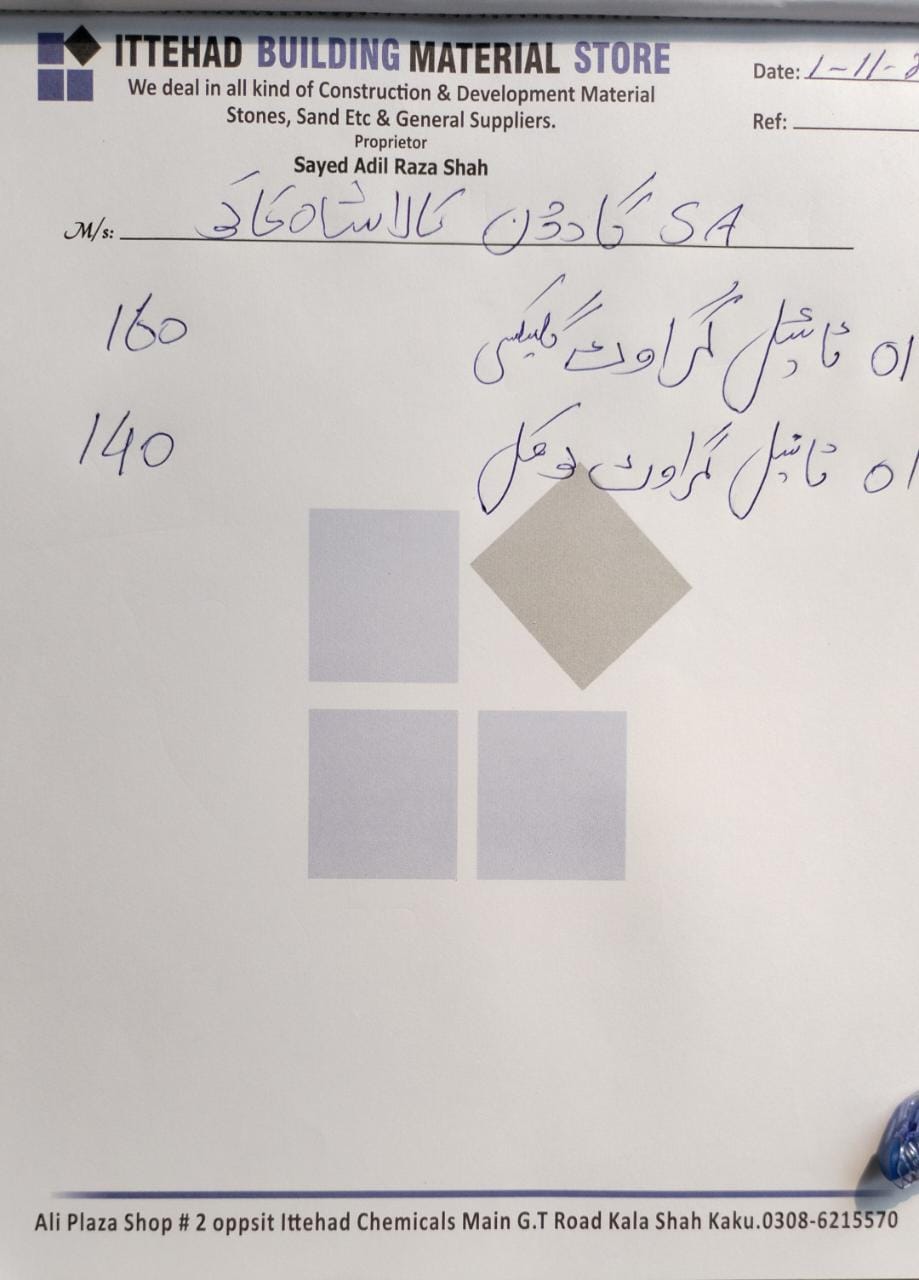 ITTEHAD BUILDING MATERIAL STORE
We deal in all kind of Construction & Development Material
Stones, Sand Etc & General Suppliers.
Proprietor
Sayed Adil Raza Shah
Date: 1-11-2
Ref:
M/s: SA گارڈن کالا شاہ کاکو
01 ٹائیل گراوٹ گلیکسی 160
01 ٹائیل گراوٹ 140
Ali Plaza Shop # 2 oppsit Ittehad Chemicals Main G.T Road Kala Shah Kaku.0308-6215570